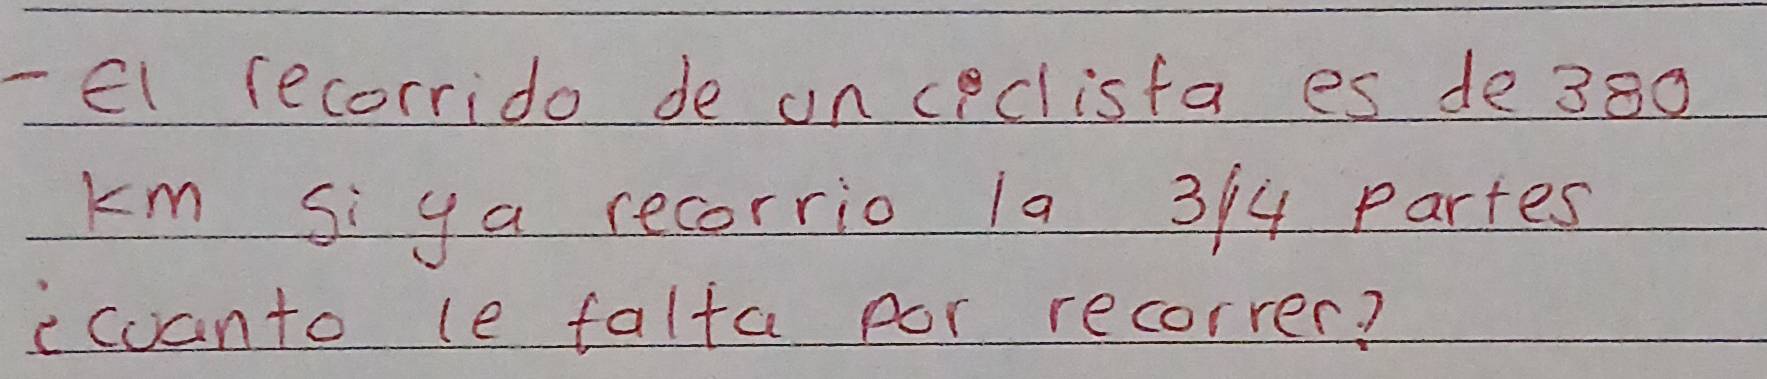 - El recorrido de un ciclista es de 380
km si ya recorrio la 3/4 partes
¿cuanto le falta por recorrer?